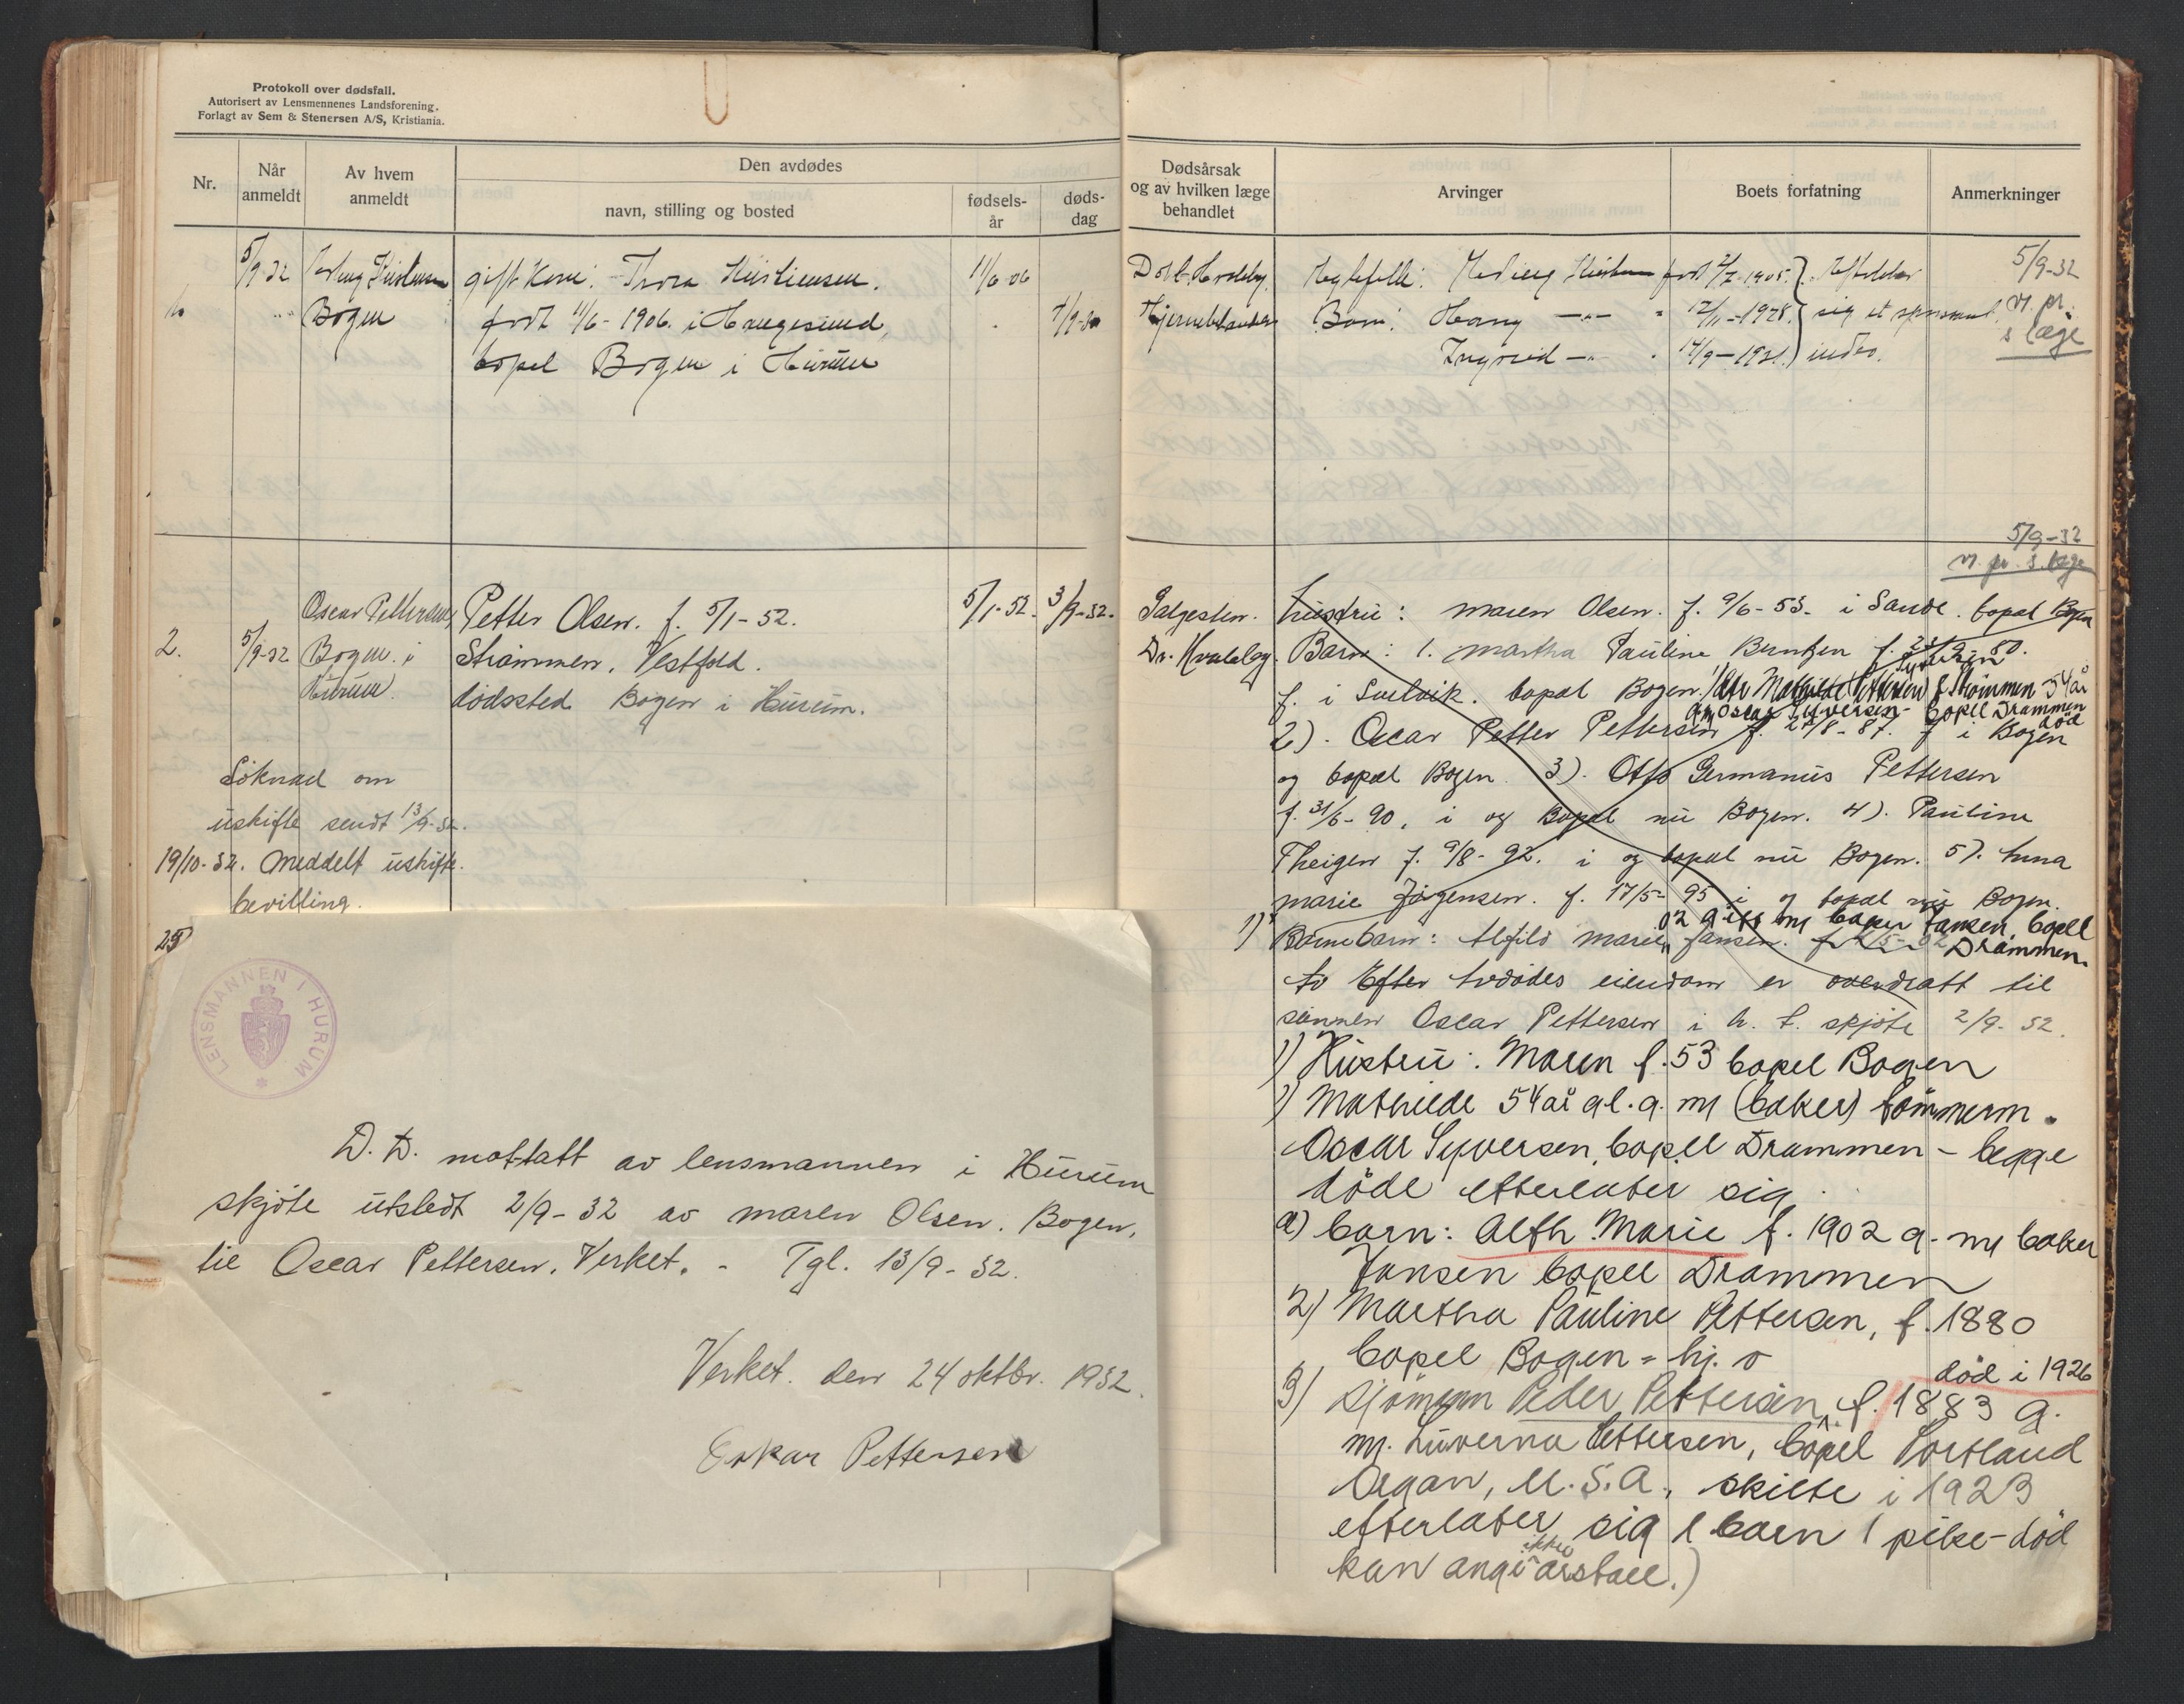 Protokoll over dødsfall.
Autorisert av Lensmennenes Landsforening.
Forlagt av Sem & Stenersen A/S, Kristiania.
Nr.
Når anmeldt
Av hvem anmeldt
Den avdødes
navn, stilling og bosted
fødsels-
år
døds-
dag
5/9-32
Bogen
gift Kone: Thora Kristiensen.
født 11/6-1906. i Haugesund,
bopel Bogen i Hurum
11/6-06
2.
5/9-32
Oscar Pettersen,
Bogen i
Hurum.
Petter Olsen. f. 5/1-52.
Strømmen, Vestfold.
dødssted Bogen i Hurum.
5/1-52.
3/9-32.
Søknad om
uskifte sendt 13/9-32.
19/10-32. Meddelt uskifte.
bevilling.
25
LENSMANNEN I HURUM
D. D. mottatt av lensmannen i Hurum
skjøte utstedt 2/9-32 av Maren Olsen. Bogen,
til Oscar Pettersen. Verket. - Tgl. 13/9-32.
Verket. den 24 oktbr. 1932.
Oskar Pettersen
Dødsårsak
og av hvilken læge
behandlet
Arvinger
Boets forfatning
Anmerkninger
Ektefelle:
Barn: Harry 12/11-1928.
Ingrid 14/9-1931.
5/9-32
m. pr.
s læge
5/9-32
m. pr. s. læge
Dr. Hvaleby.
Hustru: Maren Olsen. f. 9/6-53. i Sande. bopel Bogen
Barn: 1. Martha Pauline Berntzen f. 80.
f. i Svelvik. bopel Bogen. Mathilde Pettersen f. Strømmen 54 år
Syversen
gm Oscar Syversen- bopel Drammen
død
2). Oscar Petter Pettersen f. 8-87. f i Bogen
og bopel Bogen. 3). Otto Germanius Pettersen
f. 31/6-90. i og Bopel nu Bogen. 4). Pauline
Theigen f. 9/8-92. i og bopel nu Bogen. 5).
Marie Jørgensen. f. 17/5-95 i og bopel nu Bogen.
02 gift m baker Jansen, bopel
1) Barnebarn: Alfild Marie Jansen. Drammen.
Efter avdødes eiendom er overdratt til
sønnen Oscar Pettersen i h. t. skjøte 2/9-32.
1) Hustru: Maren f. 53 bopel Bogen
1) Mathilde 54 år gl. g. m (baker) tømmerm.
Oscar Syversen, bopel Drammen - begge
døde efterlater sig
a) barn: Alfh. Marie f. 1902 g. m baker
Jansen bopel Drammen
2) Martha Pauline Pettersen, f. 1880
bopel Bogen
død i 1926
3) Sjømann Peder Pettersen, f. 1883 g.
m. Luverna Pettersen, bopel Portland
Oegan, U.S.A., skilte i 1923
efterlater sig 1 barn (pike-død
kan ikke angi årstall.)